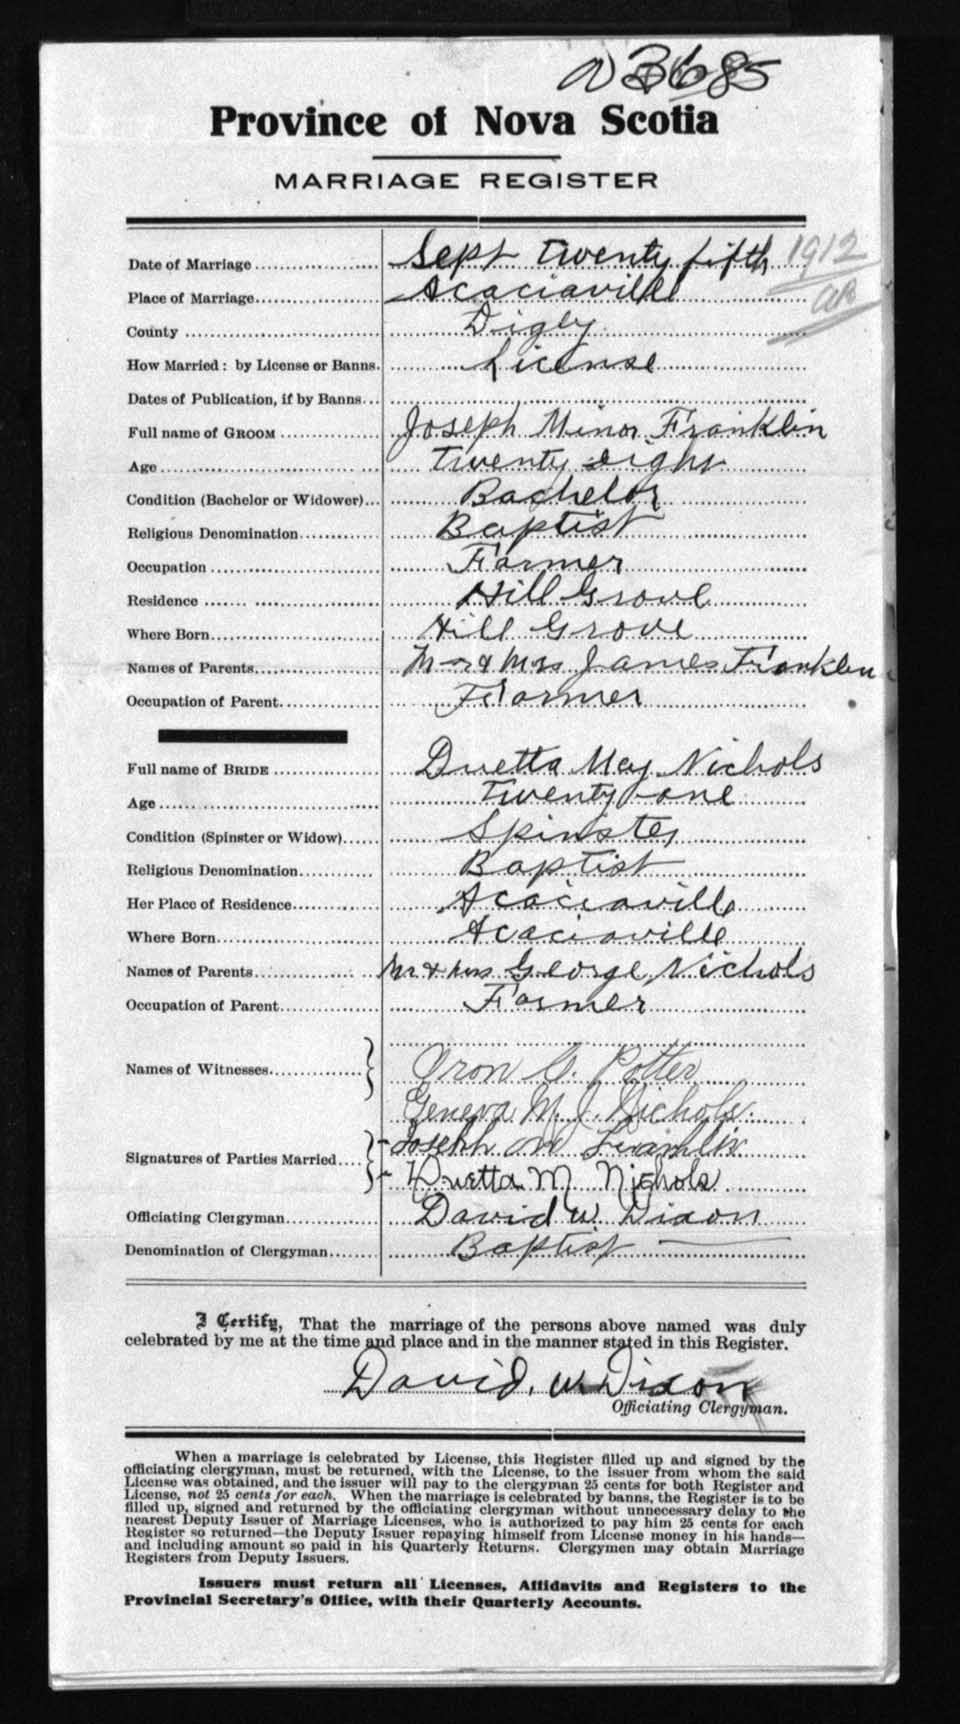 a 3685
Province of Nova Scotia
MARRIAGE REGISTER
Date of Marriage Sept Twenty fifth 1912
Place of Marriage Acaciaville
County Digby
How Married: by License or Banns. License
Dates of Publication, if by Banns
Full name of GROOM Joseph Minor Franklin
Age Twenty eight
Condition (Bachelor or Widower) Bachelor
Religious Denomination Baptist
Occupation Farmer
Residence Hill Grove
Where Born Hill Grove
Names of Parents Mr & Mrs James Franklin
Occupation of Parent Farmer
Full name of BRIDE Duetta May Nichols
Age Twenty one
Condition (Spinster or Widow) Spinster
Religious Denomination Baptist
Her Place of Residence Acaciaville
Where Born Acaciaville
Names of Parents Mr & Mrs George Nichols
Occupation of Parent Farmer
Names of Witnesses Oron G. Potter
Geneva M. J. Nichols.
Signatures of Parties Married Joseph M Franklin
Duetta M Nichols
Officiating Clergyman David W. Dixon
Denomination of Clergyman Baptist
I Certify, That the marriage of the persons above named was duly
celebrated by me at the time and place and in the manner stated in this Register.
David. W. Dixon
Officiating Clergyman.
When a marriage is celebrated by License, this Register filled up and signed by the
officiating clergyman, must be returned, with the License, to the issuer from whom the said
License was obtained, and the issuer will pay to the clergyman 25 cents for both Register and
License, not 25 cents for each. When the marriage is celebrated by banns, the Register is to be
filled up, signed and returned by the officiating clergyman without unnecessary delay to the
nearest Deputy Issuer of Marriage Licenses, who is authorized to pay him 25 cents for each
Register so returned—the Deputy Issuer repaying himself from License money in his hands—
and including amount so paid in his Quarterly Returns. Clergymen may obtain Marriage
Registers from Deputy Issuers.
Issuers must return all Licenses, Affidavits and Registers to the
Provincial Secretary's Office, with their Quarterly Accounts.